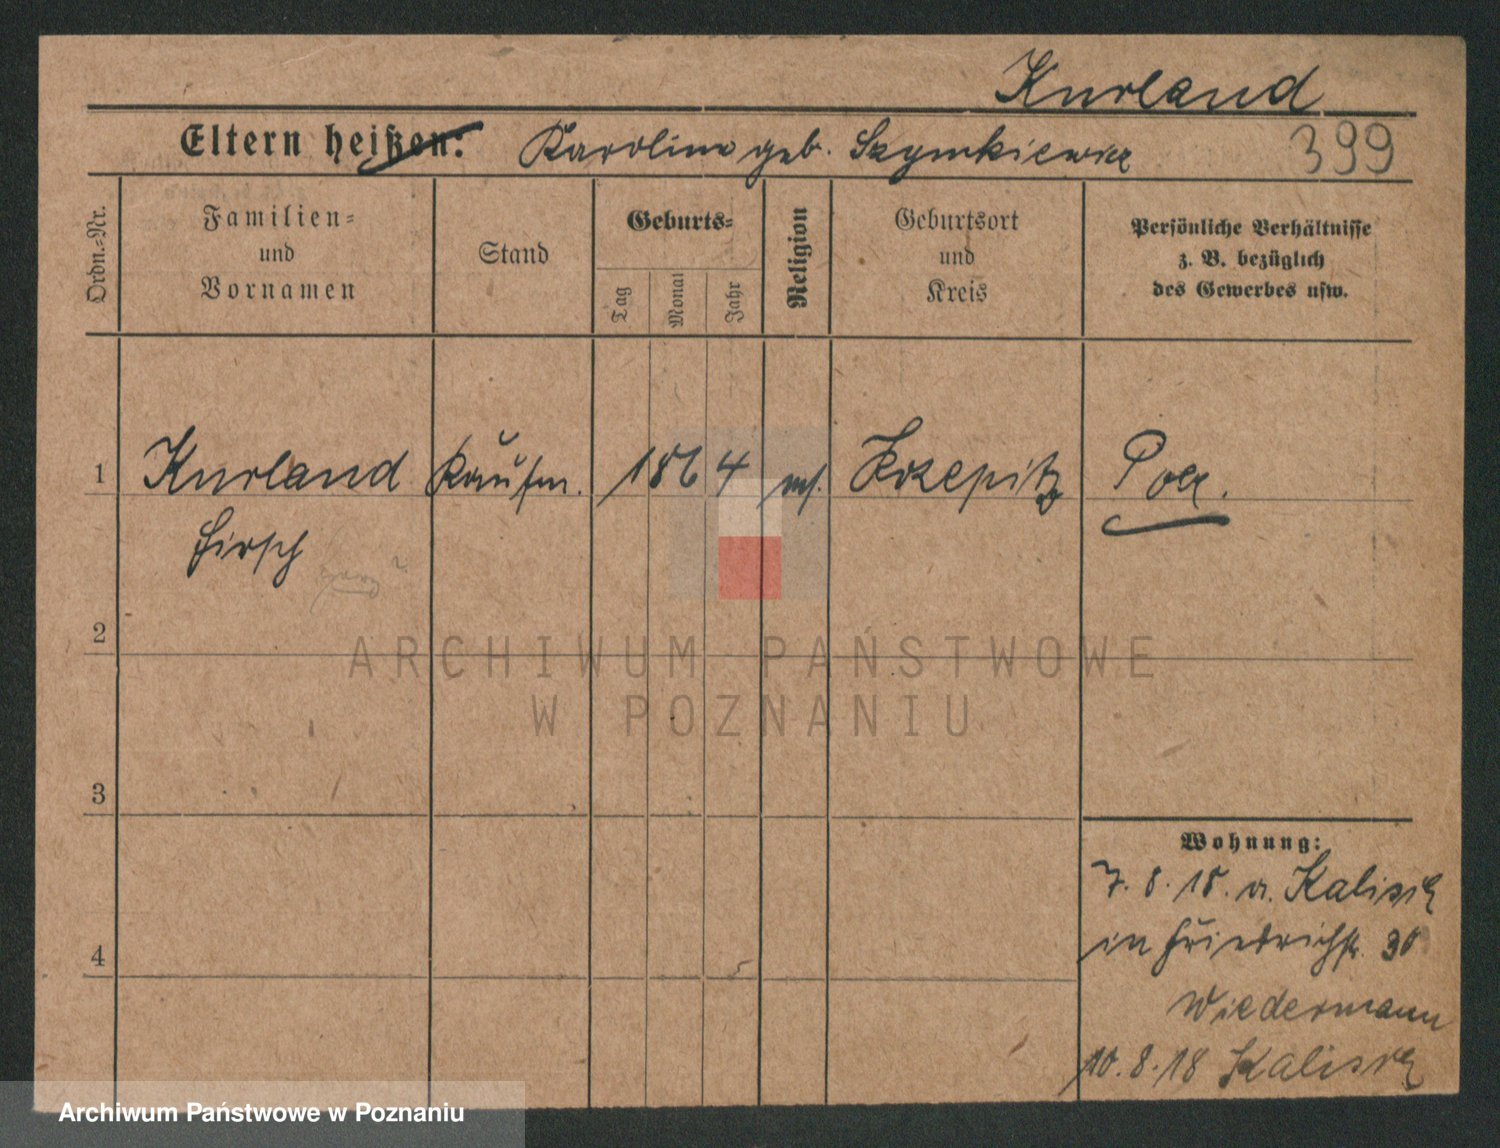 Kurland
Eltern heißen: Karolina geb. Szymkiewicz
399
Ordn.=Nr.
Familien=
und
Vornamen
Stand
Geburts=
Tag
Monat
Jahr
Religion
Geburtsort
und
Kreis
Persönliche Verhältnisse
z. B. bezüglich
des Gewerbes usw.
1 Kurland Kaufm. 1864 Krzepitz
Hirsch
2
3
4
Wohnung:
7.8.18. v. Kalisch
in Friedrichstr. 30
Wiedermann
10.8.18 Kalisch
ARCHIWUM PAŃSTWOWE
W POZNANIU
Archiwum Państwowe w Poznaniu